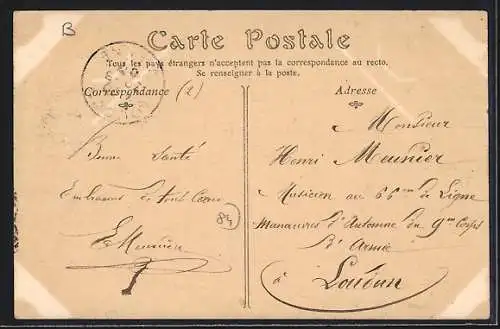 B
Carte Postale
Tous les pays étrangers n'acceptent pas la correspondance au recto.
Se renseigner à la poste.
Correspondance
(2)
Adresse
Monsieur
Henri Meunier
Musicien au 66me de Ligne
Manœuvres d'Automne du 9me Corps
d'Armée
à Loudun
Bonne Santé
Embrasses de tout Cœur
E Meunier
84